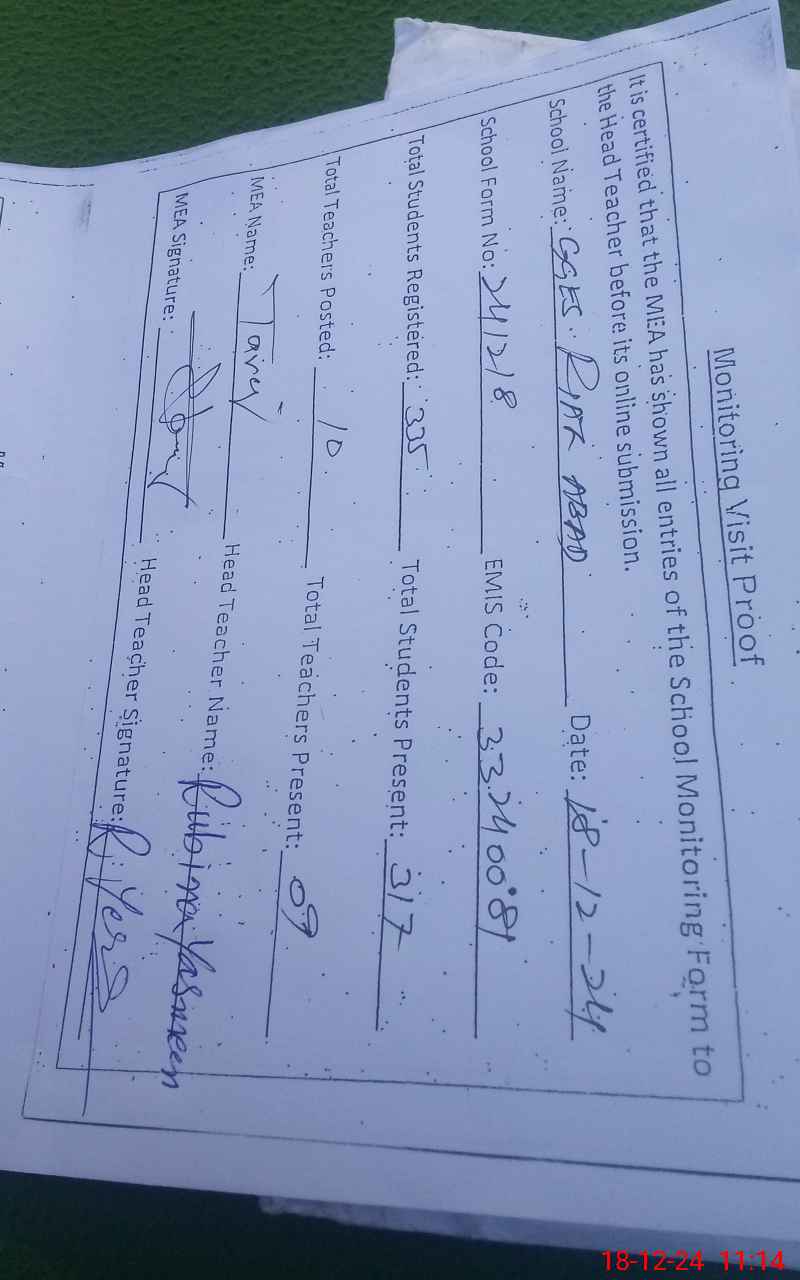 Monitoring Visit Proof
It is certified that the MEA has shown all entries of the School Monitoring Form to
the Head Teacher before its online submission.
School Name: GGES. RIAZ ABAD Date: 18-12-24
School Form No: 241218 EMIS Code: 33240081
Total Students Registered: 335 Total Students Present: 317
Total Teachers Posted: 10 Total Teachers Present: 09
MEA Name: Tariq Head Teacher Name: Rubina Yasmeen
MEA Signature: Head Teacher Signature:
18-12-24 11:14